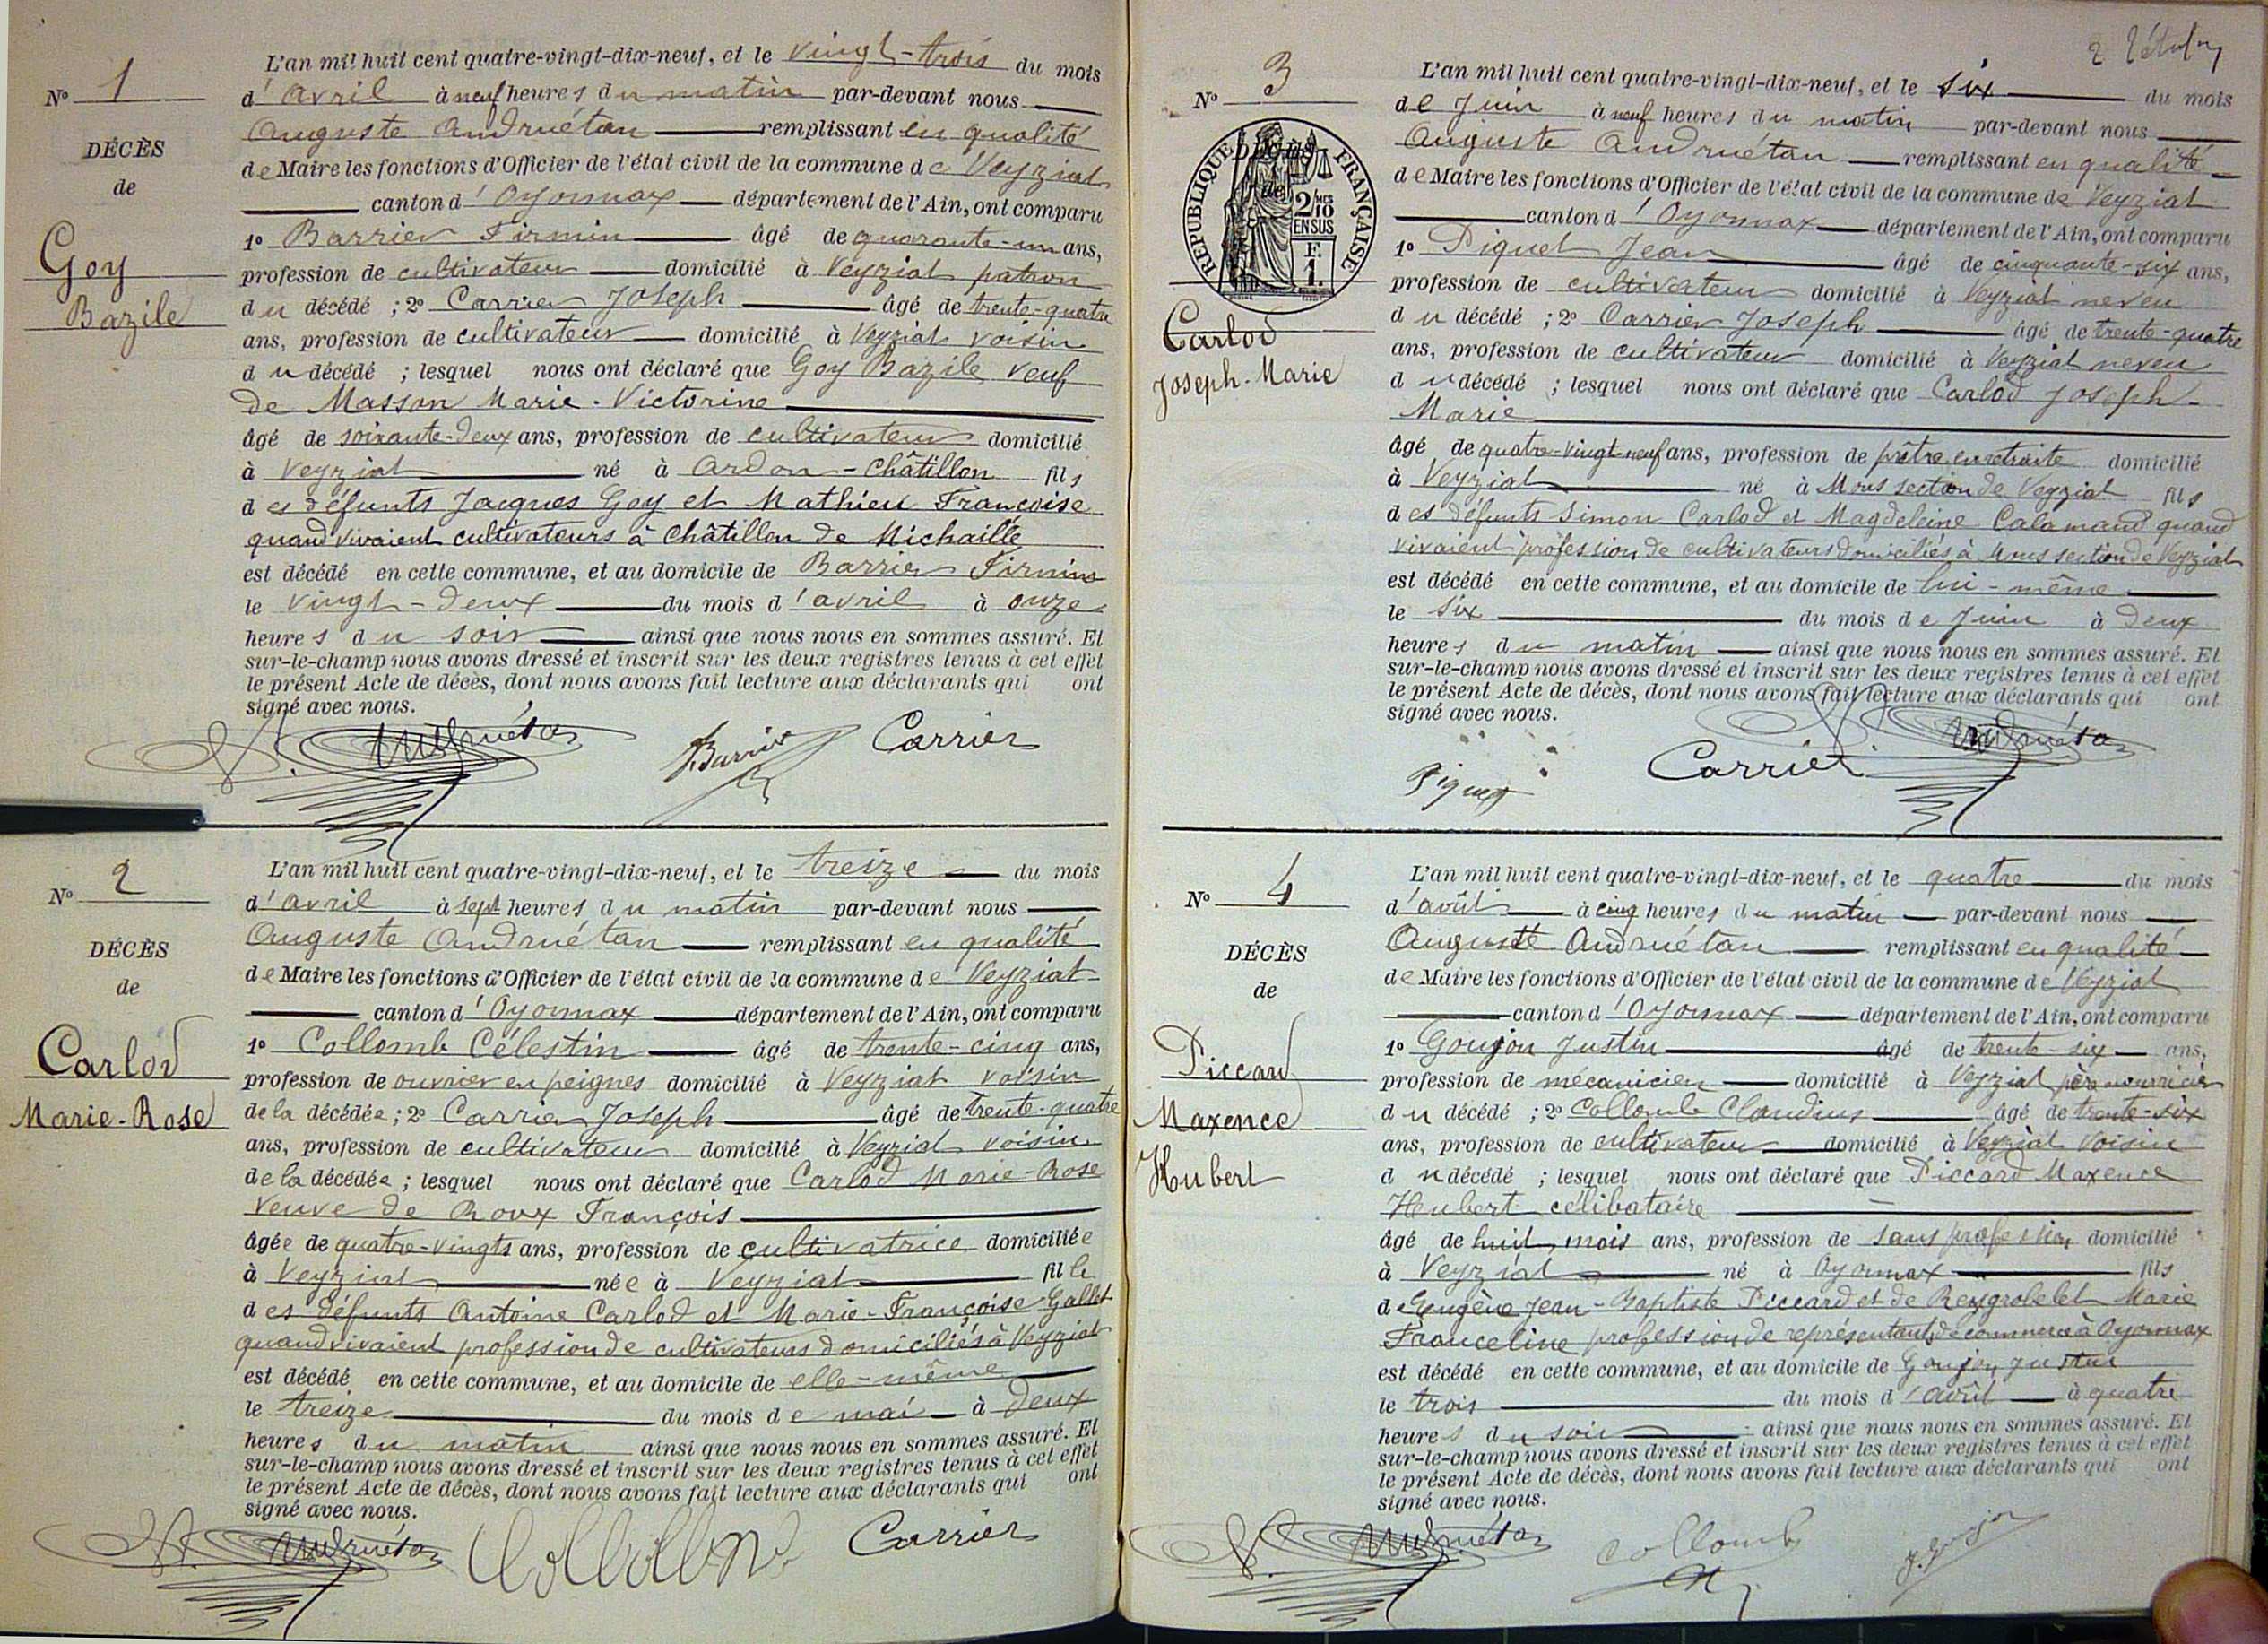 N° 1
DÉCÈS
de
Goy
Bazile
L'an mil huit cent quatre-vingt-dix-neuf, et le vingt-trois du mois
d'avril à neuf heures du matin par-devant nous
Auguste Andruétan remplissant en qualité
de Maire les fonctions d'Officier de l'état civil de la commune de Veyziat
canton d'Oyonnax département de l'Ain, ont comparu
1° Barrier Firmin âgé de quarante-un ans,
profession de cultivateur domicilié à Veyziat patron
du décédé ; 2° Carrier Joseph âgé de trente-quatre
ans, profession de cultivateur domicilié à Veyziat voisin
du décédé ; lesquel nous ont déclaré que Goy Bazile veuf
de Masson Marie-Victorine
âgé de soixante-deux ans, profession de cultivateur domicilié
à Veyziat né à Ardon-Châtillon fils
des défunts Jacques Goy et Mathieu Françoise
quand vivaient cultivateurs à Châtillon de Michaille
est décédé en cette commune, et au domicile de Barrier Firmin
le vingt-deux du mois d'avril à onze
heures du soir ainsi que nous nous en sommes assuré. Et
sur-le-champ nous avons dressé et inscrit sur les deux registres tenus à cet effet
le présent Acte de décès, dont nous avons fait lecture aux déclarants qui ont
signé avec nous.
Andruétan F. Barrier Carrier
N° 2
DÉCÈS
de
Carlod
Marie-Rose
L'an mil huit cent quatre-vingt-dix-neuf, et le treize du mois
d'avril à sept heures du matin par-devant nous
Auguste Andruétan remplissant en qualité
de Maire les fonctions d'Officier de l'état civil de la commune de Veyziat
canton d'Oyonnax département de l'Ain, ont comparu
1° Collomb Célestin âgé de trente-cinq ans,
profession de ouvrier en peignes domicilié à Veyziat voisin
de la décédée ; 2° Carrier Joseph âgé de trente-quatre
ans, profession de cultivateur domicilié à Veyziat voisin
de la décédée ; lesquel nous ont déclaré que Carlod Marie-Rose
veuve de Roux François
âgée de quatre-vingts ans, profession de cultivatrice domiciliée
à Veyziat née à Veyziat fille
des défunts Antoine Carlod et Marie-Françoise Gallet
quand vivaient profession de cultivateurs domiciliés à Veyziat
est décédé en cette commune, et au domicile de elle-même
le treize du mois de mai à deux
heures du matin ainsi que nous nous en sommes assuré. Et
sur-le-champ nous avons dressé et inscrit sur les deux registres tenus à cet effet
le présent Acte de décès, dont nous avons fait lecture aux déclarants qui ont
signé avec nous.
Andruétan Carrier
N° 3
DÉCÈS
de
RÉPUBLIQUE FRANÇAISE
2/10 MES
EN SUS
F.
1.
Carlod
Joseph-Marie
L'an mil huit cent quatre-vingt-dix-neuf, et le six du mois
de Juin à neuf heures du matin par-devant nous
Auguste Andruétan remplissant en qualité
de Maire les fonctions d'Officier de l'état civil de la commune de Veyziat
canton d'Oyonnax département de l'Ain, ont comparu
1° Piquet Jean âgé de cinquante-six ans,
profession de cultivateur domicilié à Veyziat neveu
du décédé ; 2° Carrier Joseph âgé de trente-quatre
ans, profession de cultivateur domicilié à Veyziat neveu
du décédé ; lesquel nous ont déclaré que Carlod Joseph-
Marie
âgé de quatre-vingt-neuf ans, profession de prêtre en retraite domicilié
à Veyziat né à Mons section de Veyziat fils
des défunts Simon Carlod et Magdeleine Calamand quand
vivaient profession de cultivateurs domiciliés à Mons section de Veyziat
est décédé en cette commune, et au domicile de lui-même
le six du mois de Juin à deux
heures du matin ainsi que nous nous en sommes assuré. Et
sur-le-champ nous avons dressé et inscrit sur les deux registres tenus à cet effet
le présent Acte de décès, dont nous avons fait lecture aux déclarants qui ont
signé avec nous.
Piquet Carrier Andruétan
N° 4
DÉCÈS
de
Piccard
Maxence
Hubert
L'an mil huit cent quatre-vingt-dix-neuf, et le quatre du mois
d'août à cinq heures du matin par-devant nous
Auguste Andruétan remplissant en qualité
de Maire les fonctions d'Officier de l'état civil de la commune de Veyziat
canton d'Oyonnax département de l'Ain, ont comparu
1° Goujon Justin âgé de trente-six ans,
profession de mécanicien domicilié à Veyziat père nourricier
du décédé ; 2° Collomb Claudius âgé de trente-six
ans, profession de cultivateur domicilié à Veyziat voisin
du décédé ; lesquel nous ont déclaré que Piccard Maxence
Hubert célibataire
âgé de huit mois ans, profession de sans profession domicilié
à Veyziat né à Oyonnax fils
de Eugène Jean-Baptiste Piccard et de Reygrobelet Marie
Franceline profession de représentant de commerce à Oyonnax
est décédé en cette commune, et au domicile de Goujon Justin
le trois du mois d'août à quatre
heures du soir ainsi que nous nous en sommes assuré. Et
sur-le-champ nous avons dressé et inscrit sur les deux registres tenus à cet effet
le présent Acte de décès, dont nous avons fait lecture aux déclarants qui ont
signé avec nous.
Andruétan Collomb J. Goujon